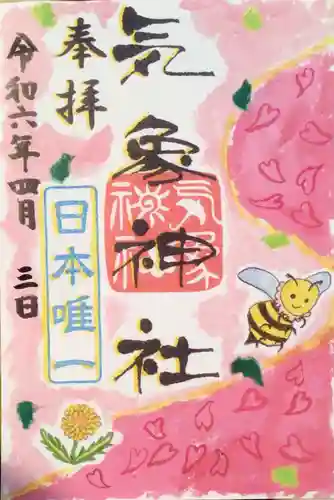 気象神社
奉拝
日本唯一
令和六年四月 三日
気象神社